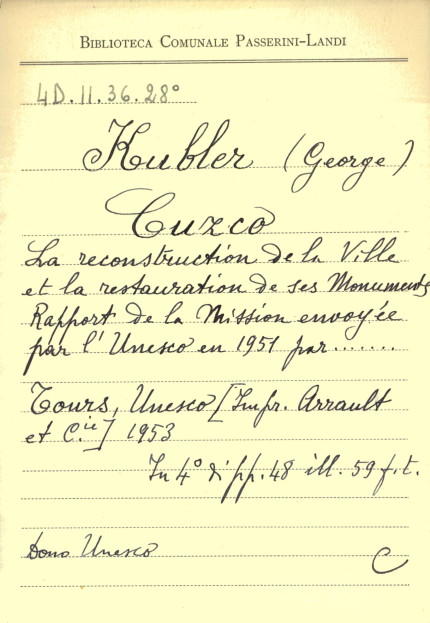 BIBLIOTECA COMUNALE PASSERINI-LANDI
4D.II.36.28°
Kubler (George)
Cuzco
La reconstruction de la Ville
et la restauration de ses Monuments
Rapport de la Mission envoyée
par l'Unesco en 1951 par.......
Tours, Unesco [Impr. Arrault
et C.ie] 1953
In 4° di pp. 48 ill. 59 f.t.
Dono Unesco
C